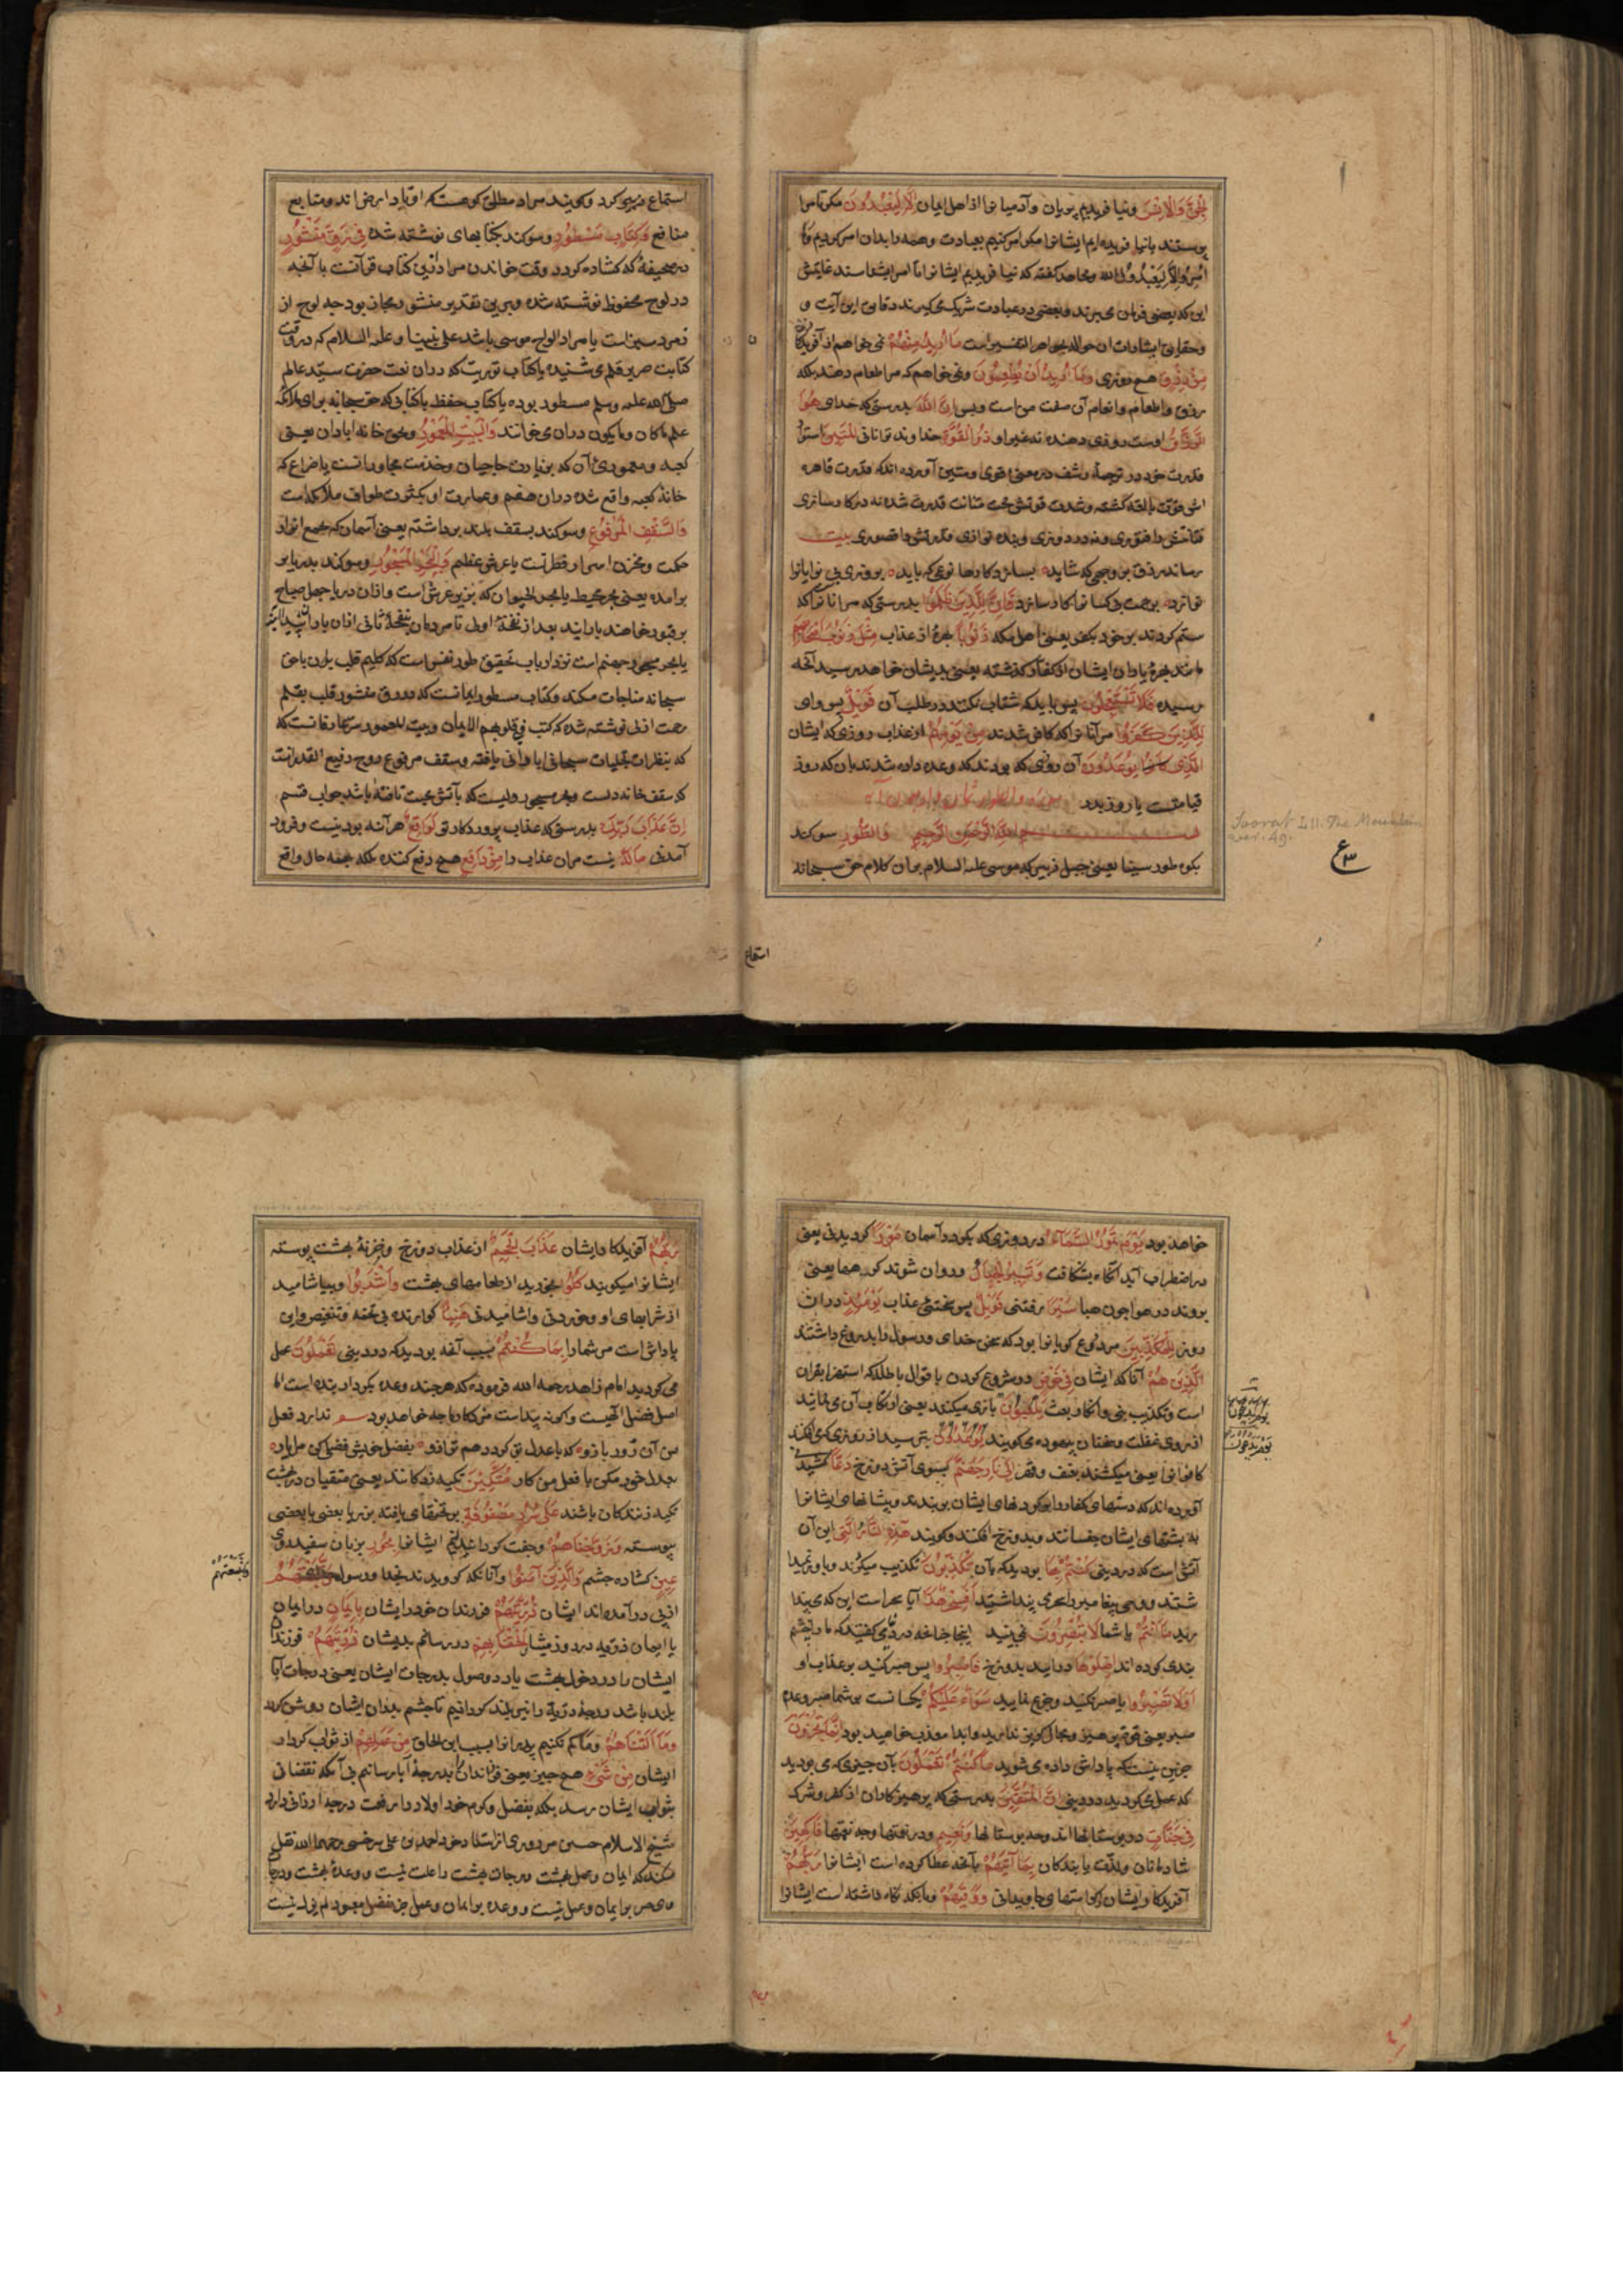 الجن والانس ونیافریدیم پریان وآدمیانرا از اهل ایمان الا لیعبدون مکر تا مرا
پرستند یا نیافریده‌ایم ایشانرا مکر امر کنیم بعبادت وهمه را بدان امر کردیم وما
امروا الا لیعبدوا الله ومجاهد کفته که نیافریدیم ایشانرا الا مرا بشناسند
این که بعضی فرمان می برند وبعضی در عبادت شریک می کیرند ودقایق این آیت و
وحقایق اشارات آن حواله بجواهر التفسیر است ما ارید منهم نمی خواهم از آفریدکان
من رزق هیچ روزی وما ارید ان یطعمون ونمی خواهم که مرا طعام دهند بلکه
رزق واطعام وانعام آن صفت من است وبس ان الله بدرستی که خدای هو
الرزاق اوست روزی دهنده نه غیر او ذو القوة خداوند توانائی المتین استوار
قدرت خود در ترجمهٔ رشف در معنی قوی ومتین آورده اند که قدرت قاهره
اش قوت بالغه کشته وشدت قوتش متانت قدرت شده نه در کار سازی
متانتش را فتوری ونه در روزی وبنده نوازی قدرتش را قصوری بیت
رساند رزق بر وجهی که شاید بسازد کارها نوعی که باید بروزی بی نوایانرا
نوازد برحمت بی کسانرا کار سازد فان للذین ظلموا بدرستی که مر آنانرا که
ستم کردند بر خود بکفر یعنی اهل مکه ذنوبا بهرهٔ از عذاب مثل ذنوب اصحابهم
مانند بهرهٔ یاران ایشان از کفار کذشته یعنی بدیشان خواهد رسید آنچه
رسیده فلا یستعجلون پس باید که شتاب نکنند در طلب آن فویل پس وای
للذین کفروا مر آنانرا که کافر شدند من یومهم از عذاب روزی که ایشان
الذی یوعدون آن روزی که بودند که وعده داده شدند بآن که روز
قیامتست یا روز بدر
بسم الله الرحمن الرحیم والطور سوکند
بکوه طور سینا یعنی جبل زبیر که موسی علیه السلام بران کلام حق سبحانه
Soorat LII. The Mountain
ver. 49.
ع
استماع
استماع میکرد وکویند مراد مطلق کوهست که اوتاد ارض اند ومنابع
منافع وکتاب مسطور وسوکند بکتابهای نوشته شده فی رق منشور
در صحیفهٔ که کشاده کردد وقت خواندن مراد ازین کتاب قرآنست یا آنچه
در لوح محفوظ نوشته شده وبرین تقدیر منشور مجاز بود چه لوح از
زمرد سبز است یا مراد الواح موسی باشد علی نبینا وعلیه السلام که در وقت
کتابت صریر قلم می شنید یا کتاب توریت که دران نعت حضرت سید عالم
صلی الله علیه وسلم مسطور بوده یا کتاب حفظه یا کتابی که حق سبحانه برای ملائکه
علم ماکان ومایکون دران می خوانند والبیت المعمور وبحق خانه ابادان یعنی
کعبه ومعموری آن که بزیارت حاجیان وخدمت مجاورانست یا ضراح که
خانهٔ کعبه واقع شده در آسمان هفتم وعمارت او بکثرت طواف ملائکه است
والسقف المرفوع وسوکند بسقف بلند برداشته یعنی آسمان که مجمع انوار
حکمت ومخزن اسرار فطرتست یا عرش عظیم والبحر المسجور وسوکند بدریای پر
برآمده یعنی بحر محیط یا بحر الحیوان که بزیر عرش است واز ان دریا چهل صباح
بر قبور خواهند بارانید بعد از نفخهٔ اولی تا مردمان بنفخهٔ ثانی ازان یاران
یا بحر مسجور جهنم است نزد ارباب تحقیق طور نفس است که کلیم قلب بران با حق
سبحانه مناجات میکند وکتاب مسطور ایمانست که در رق منشور قلب بقلم
رحمت ازلی نوشته شده که کتب فی قلوبهم الایمان وبیت المعمور سر عارفانست که
که بنظرات تجلیات سبحانی ابادانی یافته وسقف مرفوع روح رفیع القدر است
که سقف خانه دلست وبحر مسجور دلیست که بآتش محبت تافته باشد جواب قسم
ان عذاب ربک بدرستی که عذاب پروردکار تو لواقع هر آینه بودنیست وفرود
آمدنی ماله نیست مران عذاب را من دافع هیچ دفع کننده بلکه بهمه حال واقع
خواهد بود یوم تمور السماء در روزی که بکردد آسمان مورا کردیدنی یعنی
در اضطراب آید آنکاه بشکافت وتسیر الجبال وروان شوند کوهها یعنی
بروند در هوا چون هبا سیرا رفتنی فویل پس سختی عذاب یومئذ دران
روز للمکذبین مر دروغ کویانرا بود که سخن خدای ورسول را بدروغ داشتند
الذین هم آنانکه ایشان فی خوض در شروع کردن باقوال باطله که استهزا بقران
است وتکذیب نبی وانکار بعث یلعبون بازی میکنند یعنی ارتکاب آن می نمایند
از روی غفلت وسخنان بیهوده می کویند یوم یدعون بترسید از روزی که می افکنند
کافرانرا یعنی میکشند بعنف وقهر الی نار جهنم بسوی آتش دوزخ دعا کشیدنی
آورده اند که دستهای کفار را بر کردنهای ایشان بربندند وپیشانیهای ایشانرا
به پشتهای ایشان چفسانند وبدوزخ افکنند وکویند هذه النار التی این آن
آتش است که در دنیا کنتم بها بودید که بآن تکذبون تکذیب میکردند وباور نمیدا
شتند ووحی پیغامبر را سحر می پنداشتید افسحر هذا آیا سحر است این که می بیند
برید ام انتم یا شما لا تبصرون نمی بینید اینجا چنانچه در دنیا می کفتید که ما را چشم
بندی کرده اند اصلوها درایید بدوزخ فاصبروا پس صبر کنید بر عذاب او
او لا تصبروا یا صبر نکنید وجزع نمایید سواء علیکم یکسانست بر شما صبر وعدم
صبر یعنی قوت هیز ومجال کریز ندارید وابدا معذب خواهید بود انما تجزون
جزین نیست که پاداش داده می شوید ما کنتم تعملون بآن چیزی که می بودید
که عمل می کردید در دنیا ان المتقین بدرستی که پرهیز کاران از کفر وشرک
فی جنات در بوستانها اند وچه بوستانها ونعیم ودر نعمتها وچه نعمتها فاکهین
شادمانان ولذت یابندکان بما آتیهم بآنچه عطا کرده است ایشانرا ربهم
آفریدکار ایشان از کرامتهای جاویدانی ووقیهم وبآنکه نکاه داشته است ایشانرا
ربهم آفریدکار ایشان عذاب الجحیم از عذاب دوزخ وخزنهٔ بهشت پیوسته
ایشانرا میکویند کلوا بخورید از طعامهای بهشت واشربوا وبیاشامید
از شرابهای او وخوردنی واشامیدنی هنیئا کوارنده بی تخمه وتنغیص واین
پاداش است مر شما را بما کنتم بسبب آنچه بودید که در دنیا تعملون عمل
می کردید امام زاهد رحمه الله فرموده که هرچند وعده بکردار بنده است اما
اصل فضل الهیست واکرنه پیداست مزد کار ما چه خواهد بود ندارد فعل
من آن زور بازو که با عدل تو کردد هم ترازو بفضل خویش فضلی کن مرا یار
بعدل خود مکن با فعل من کار متکئین تکیه زدکانند یعنی متقیان در بهشت
تکیه زنندکان باشند علی سرر مصفوفة بر تختهای بافته بزر یا بعضی با بعضی
پیوسته وزوجناهم وجفت کردانیدیم ایشانرا بحور بزنان سفید روی
عین کشاده چشم والذین آمنوا وآنانکه کرویدند بخدا ورسول واتبعتهم
از پی درآمده اند ایشان ذریتهم فرزندان خود ایشان بایمان در ایمان
یا ایمان ذریه در روز میثاق الحقنا بهم در رسانیم بدیشان ذریتهم فرزندان
ایشان را در دخول بهشت یا در وصول بدرجات ایشان یعنی درجات آبا
بلند باشد درجهٔ ذریة را نیز بلند کردانیم تا چشم پدران ایشان روشن کردد
وما التناهم وما کم نکنیم پدرانرا بسبب این الحاق من عملهم از ثواب کردار
ایشان من شیء هیچ چیز یعنی فرزندان را بدرجهٔ آبا رسانیم بی آنکه نقصانی
بثواب ایشان رسد بلکه بفضل وکرم خود اولاد را برفعت درجه ارزانی دارد
شیخ الاسلام حسین مروزی از استاد خود احمد بن علی سرخسی رحمهما الله نقل
میکند که ایمان وعمل بهشت ودرجات بهشت را علت نیست ووعدهٔ بهشت ودرجات
بر ایمان وعمل نیست ووعده بر ایمان وعمل جز فضل معبود لم یزل نیست
واتبعتهم